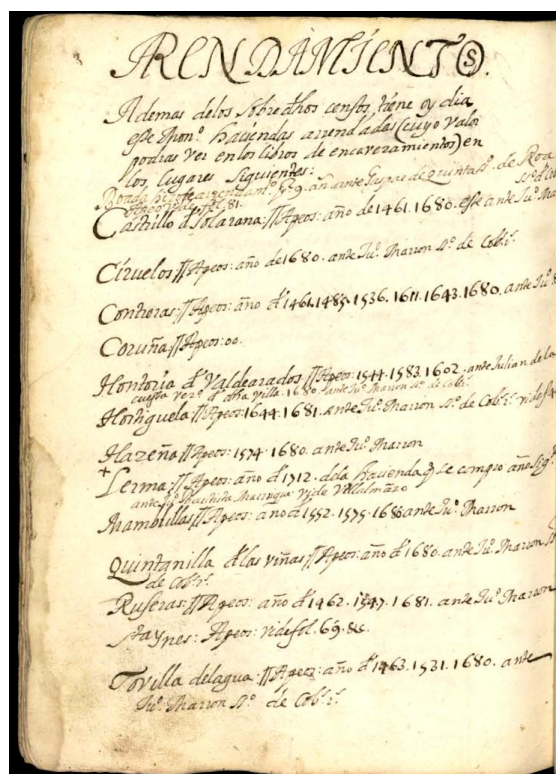 ARENDAMIENTOS.
Ademas delos sobredhos censos, tiene oy dia
este Mon.º haciendas arrendadas (cuyo valor
podras ver en los libros de encavezamientos) en
los lugares siguientes:
de Roa
Castrillo d Solarana: // Apeos: año de 1461. 1680. este ante Ju.º Marron
Ciruelos // Apeos: año de 1680. ante Ju.º Marron S.º de Cob.s
Contreras: // Apeos: año d 1461. 1485. 1536. 1611. 1643. 1680. ante Ju.º
Coruña // Apeos: oo.
Hontoria d Valdearados // Apeos: 1544. 1583. 1602. ante Julian de la
cuesta vez.º d dha villa. 1680. ante Ju.º Marron S.º de Cob.s
Hortiguela // Apeos: 1644. 1681. ante Ju.º Marron S.º de Cob.s
Hazeña // Apeos: 1574. 1680. ante Ju.º Marron
+
Lerma: // Apeos: año d 1712. dela hacienda q se compro año
ante Ju.º Bauptista Manrique vide Villalmazo
Mambrillas // Apeos: año d 1552. 1575. 1680 ante Ju.º Marron
Quintanilla d las viñas // Apeos: año d 1680. ante Ju.º Marron
de Cob.s
Ruferas: // Apeos: año d 1462. 1547. 1681. ante Ju.º Marron
Apeos: vide fol. 69. &c.
Tovilla delagua: // Apeos: año d 1463. 1531. 1680. ante
Ju.º Marron S.º de Cob.s